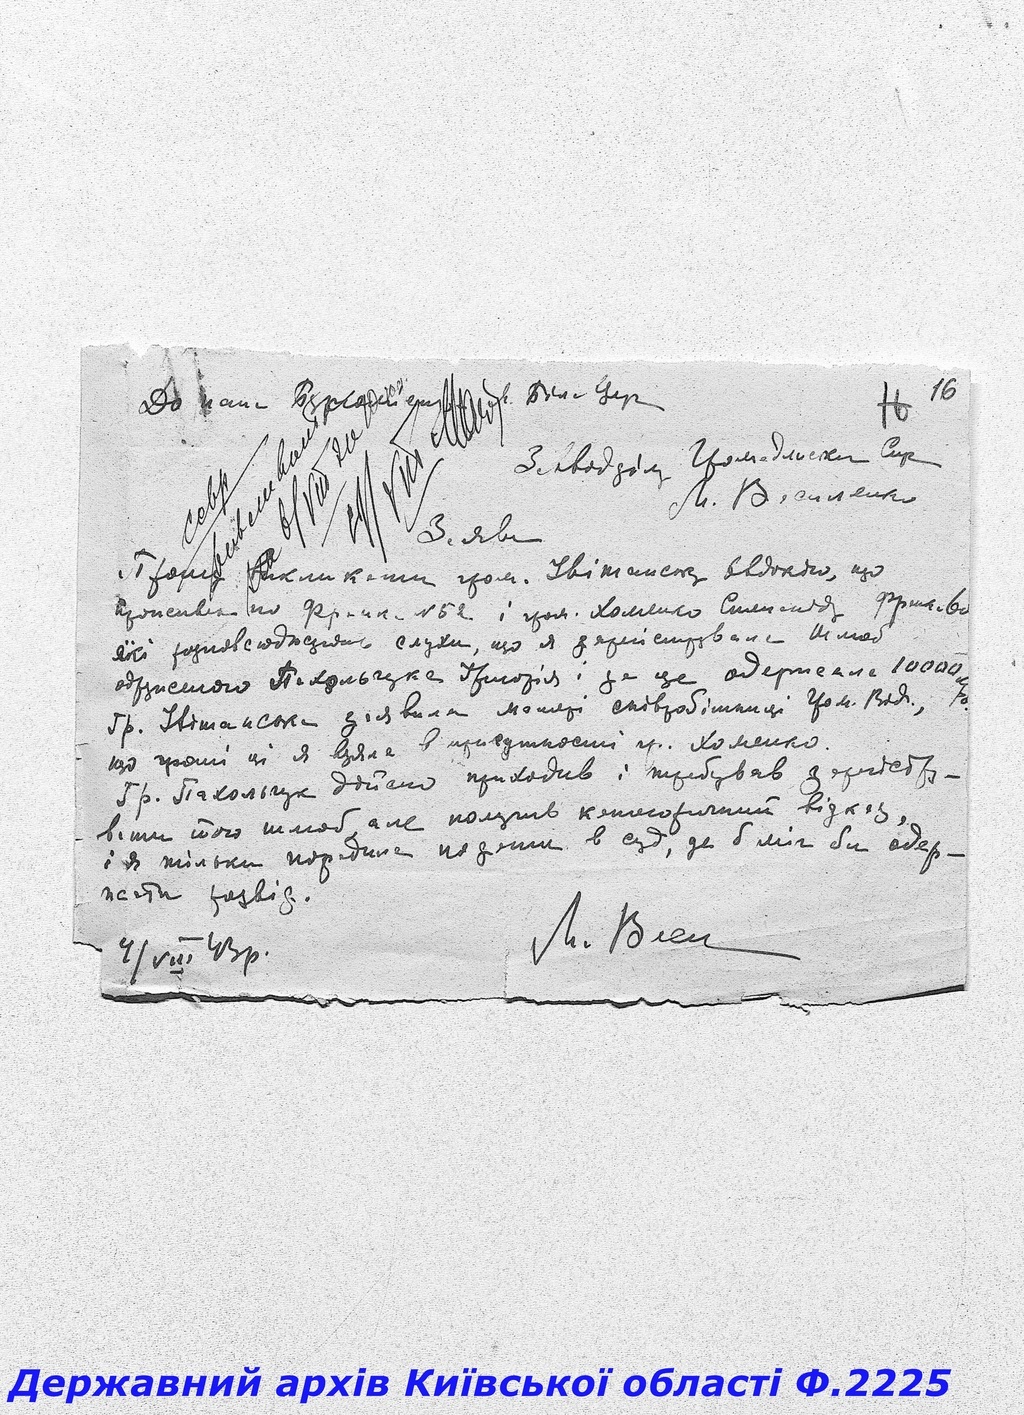 До пана м. Біла Церк
16
Завідділу Громадянськи Спр
М. Василенко
Заява
секр
6/VIII до
VIII
Прошу викликати гром. Квітанську Євдокію, що
прописана по Франка №52 і гром. Хоменко Франка
які розповсюджують слухи, що я зареєструвала шлюб
одруженого Пахольчука Григорія і за це одержала 10000
Гр. Квітанська заявила матері співробітниці Гром. Відд.,
що гроші ці я взяла в присутності гр. Хоменко.
Гр. Пахольчук дійсно приходив і требував зареєстру-
вати його шлюб, але получив категоричний відказ,
і я тільки порадила подати в суд, де б міг би одер-
жати розвід.
4/VIII 43р.
М. Васи
Державний архів Київської області Ф.2225